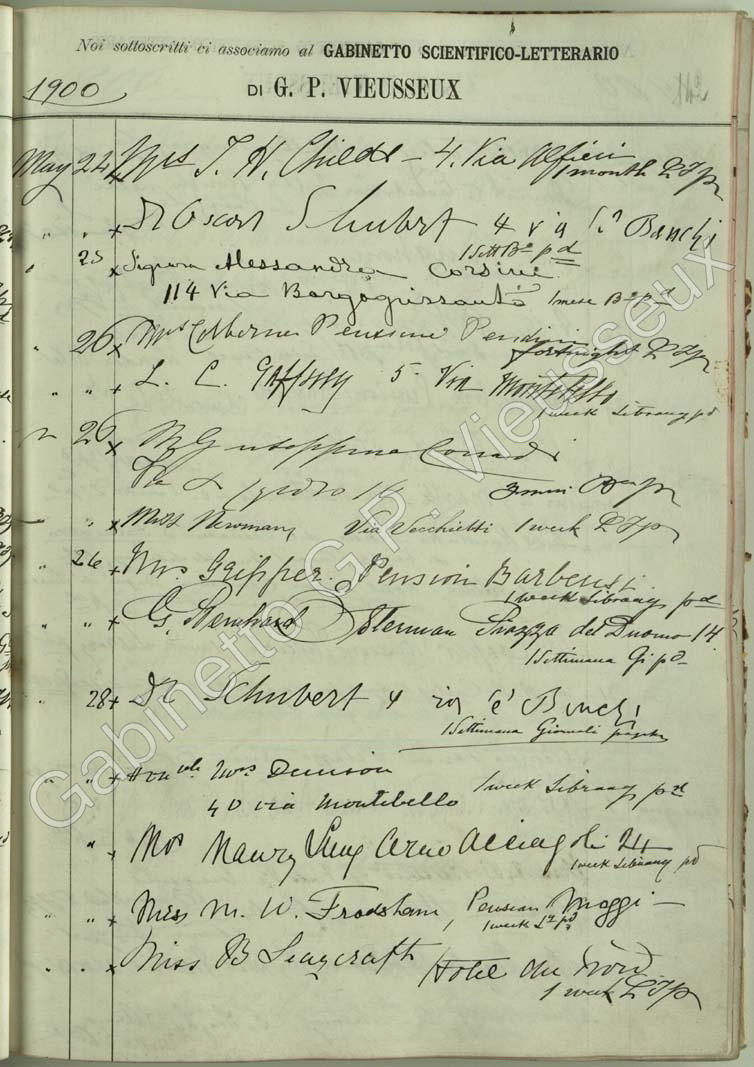 Noi sottoscritti ci associamo al GABINETTO SCIENTIFICO-LETTERARIO
1900
DI G. P. VIEUSSEUX
May 24 x Mrs T. H. Childs – 4. Via Alfieri
1 month L J p
" " x Dr Oscar Schubert 4 via Banchi
1 Sett Bo pd
25 x Signora Alessandra Corsini
114 Via Borgognissanti 1 mese Bo pd
" 26 x Mrs Pension
fortnight L J p
" " x L. C. Gaffney 5 Via Montebello
1 week Library pd
" 26 x Giuseppina Corradi
Via
" x Miss Newman Via Vecchietti 1 week L J p
" 26 x Mrs Gripper. Pension Barbensi.
1 week Library pd
" " x G. Bernhard Osterman Piazza del Duomo 14.
1 Settimana Gi pd
" 28 x Dr Schubert 4 via Banchi
1 Settimana Giornali
" " x Honble Mrs Denison 1 week Library pd
40 via Montebello
" x Mrs Maury Lung Arno Acciajoli 24
1 week Library pd
" " x Miss M. W. Frodsham, Pension Maggi –
1 week
" " x Miss B Seagcraft Hotel du Nord
1 week L J p
Gabinetto G.P. Vieusseux